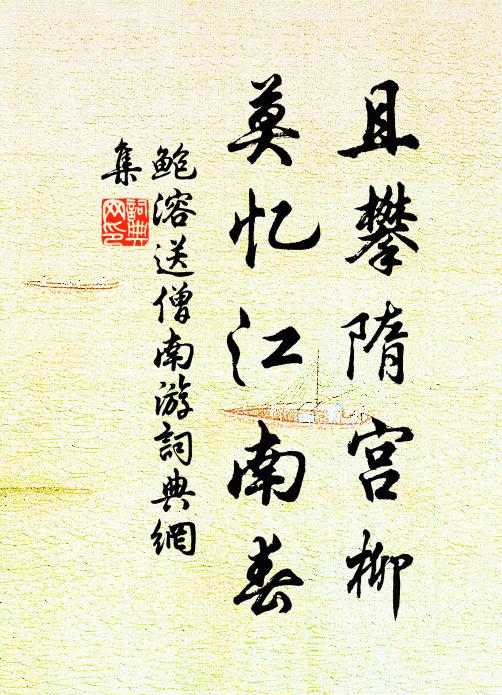 且攀隋宫柳
莫忆江南春
鲍溶送僧南游詞典網
集
詞典
网印